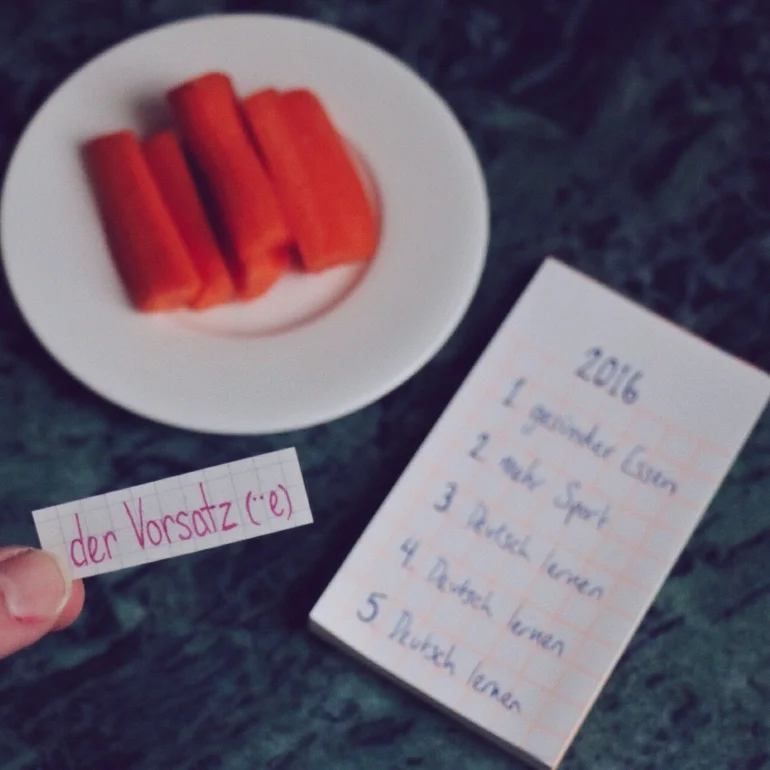 der Vorsatz (¨e)
2016
1 gesünder Essen
2 mehr Sport
3 Deutsch lernen
4 Deutsch lernen
5 Deutsch lernen